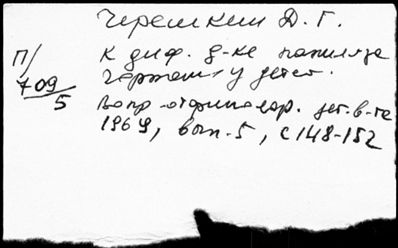 Черешкин Д. Г.
П/
709
5
К диф. д-ке папиллза
гортани у детей.
Вопр. отоларингол. дет. в-та
1969, вып. 5, с 148-152